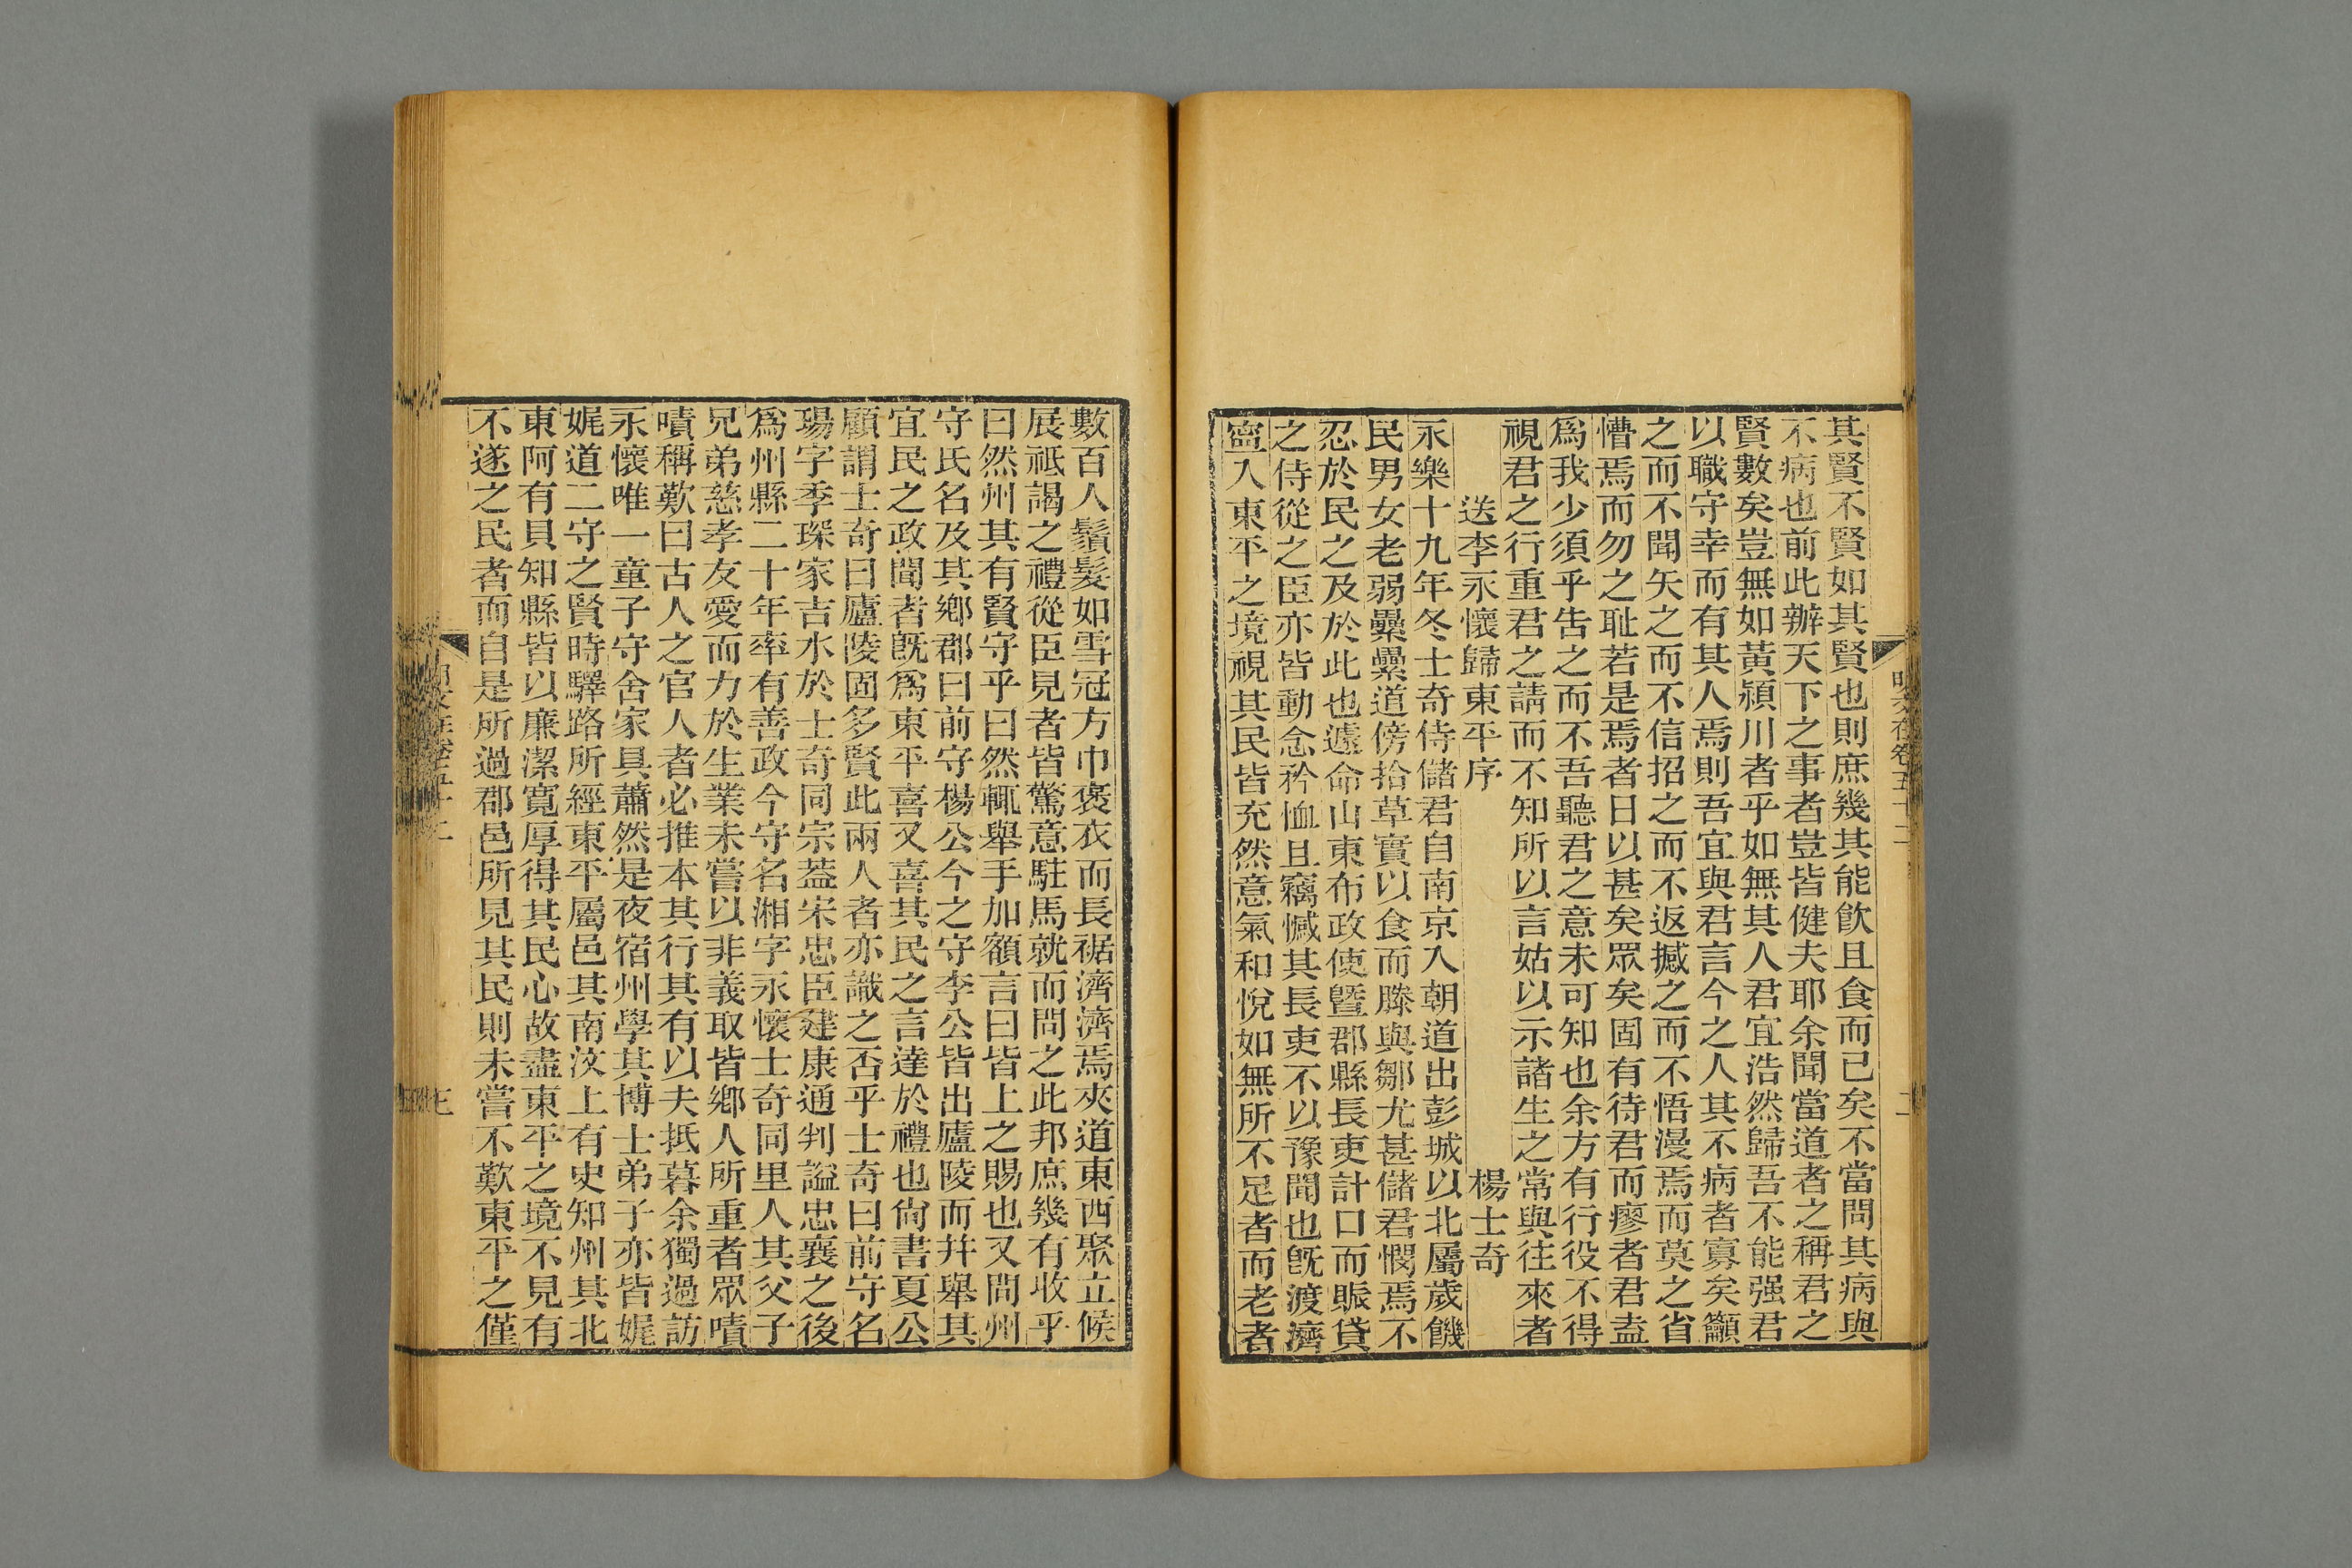 其賢不賢如其賢也則庶幾其能飮且食而已矣不當問其病與
不病也前此辦天下之事者豈皆健夫耶余聞當道者之稱君之
賢數矣豈無如黃潁川者乎如無其人君宜浩然歸吾不能强君
以職守幸而有其人焉則吾宜與君言今之人其不病者寡矣籲
之而不聞矢之而不信招之而不返撼之而不悟漫焉而莫之省
懵焉而勿之耻若是焉者日以甚矣眾矣固有待君而廖者君盍
爲我少須乎吿之而不吾聽君之意未可知也余方有行役不得
視君之行重君之請而不知所以言姑以示諸生之常與往來者
送李永懷歸東平序
楊士奇
永樂十九年冬士奇侍儲君自南京入朝道出彭城以北屬歲饑
民男女老弱纍纍道傍拾草實以食而滕與鄒尤甚儲君憫焉不
忍於民之及於此也遽命山東布政使曁郡縣長吏計口而賑貸
之侍從之臣亦皆動念矜恤且竊慽其長吏不以豫聞也旣渡濟
寗入東平之境視其民皆充然意氣和悅如無所不足者而老者
數百人鬚髮如雪冠方巾褒衣而長裾濟濟焉夾道東西聚立候
展祇謁之禮從臣見者皆驚意駐馬就而問之此邦庶幾有收乎
曰然州其有賢守乎曰然輒舉手加額言曰皆上之賜也又問州
守氏名及其鄕郡曰前守楊公今之守李公皆出廬陵而幷舉其
宜民之政聞者旣爲東平喜又喜其民之言達於禮也尙書夏公
顧謂士奇曰廬陵固多賢此兩人者亦識之否乎士奇曰前守名
瑒字季琛家吉水於士奇同宗葢宋忠臣建康通判諡忠襄之後
爲州縣二十年率有善政今守名湘字永懷士奇同里人其父子
兄弟慈孝友愛而力於生業未嘗以非義取皆鄕人所重者眾嘖
嘖稱歎曰古人之官人者必推本其行其有以夫抵暮余獨過訪
永懷唯一童子守舍家具蕭然是夜宿州學其博士弟子亦皆娓
娓道二守之賢時驛路所經東平屬邑其南汶上有史知州其北
東阿有貝知縣皆以廉潔寬厚得其民心故盡東平之境不見有
不遂之民者而自是所過郡邑所見其民則未嘗不歎東平之僅
明文在卷五十二
二
三